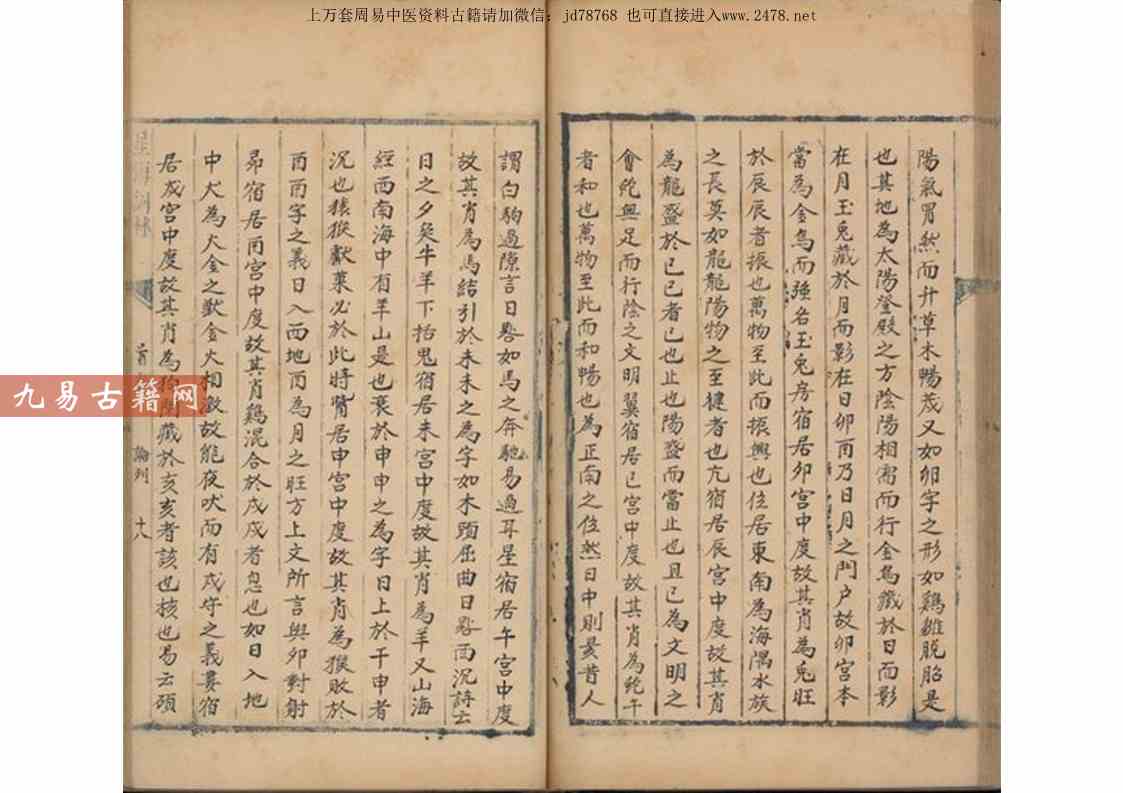 上万套周易中医资料古籍请加微信：jd78768 也可直接进入www.2478.net
陽氣冐然而升草木暢茂又如卯字之形如鷄雛脫胎是
也其地為太陽登殿之方陰陽相寓而行金烏藏於日而影
在月玉兎藏於月而影在日卯酉乃日月之門户故卯宮本
當為金烏而強名玉兎房宿居夘宮中度故其肖為兎旺
於辰辰者振也萬物至此而振興也位居東南為海隅水族
之長莫如龍龍陽物之至徤者也亢宿居辰宮中度故其肖
為龍盛於巳巳者已也止也陽盛而當止也且巳為文明之
會鉈無足而行陰之文明翼宿居巳宮中度故其肖為鉈午
者和也萬物至此而和暢也為正南之位然日中則昃昔人
謂白駒過隙言日晷如馬之奔馳易過耳星宿居午宮中度
故其肖為馬結引於未未之為字如木頭屈曲日晷西沉詩云
日之夕矣牛羊下括鬼宿居未宮中度故其肖為羊又山海
經西南海中有羊山是也衰於申申之為字日上於干申者
沉也猿猴獻菓必於此時觜居申宮中度故其肖為猴敗於
酉酉字之義日入西地酉為月之旺方上文所言與卯對射
昴宿居酉宮中度故其肖鷄混合於戌戌者忽也如日入地
中火為大金之獸金火相激故能夜吠而有戍守之義婁宿
居戌宮中度故其肖為狗藏於亥亥者該也核也易云碩
論列
十八
九易古籍网